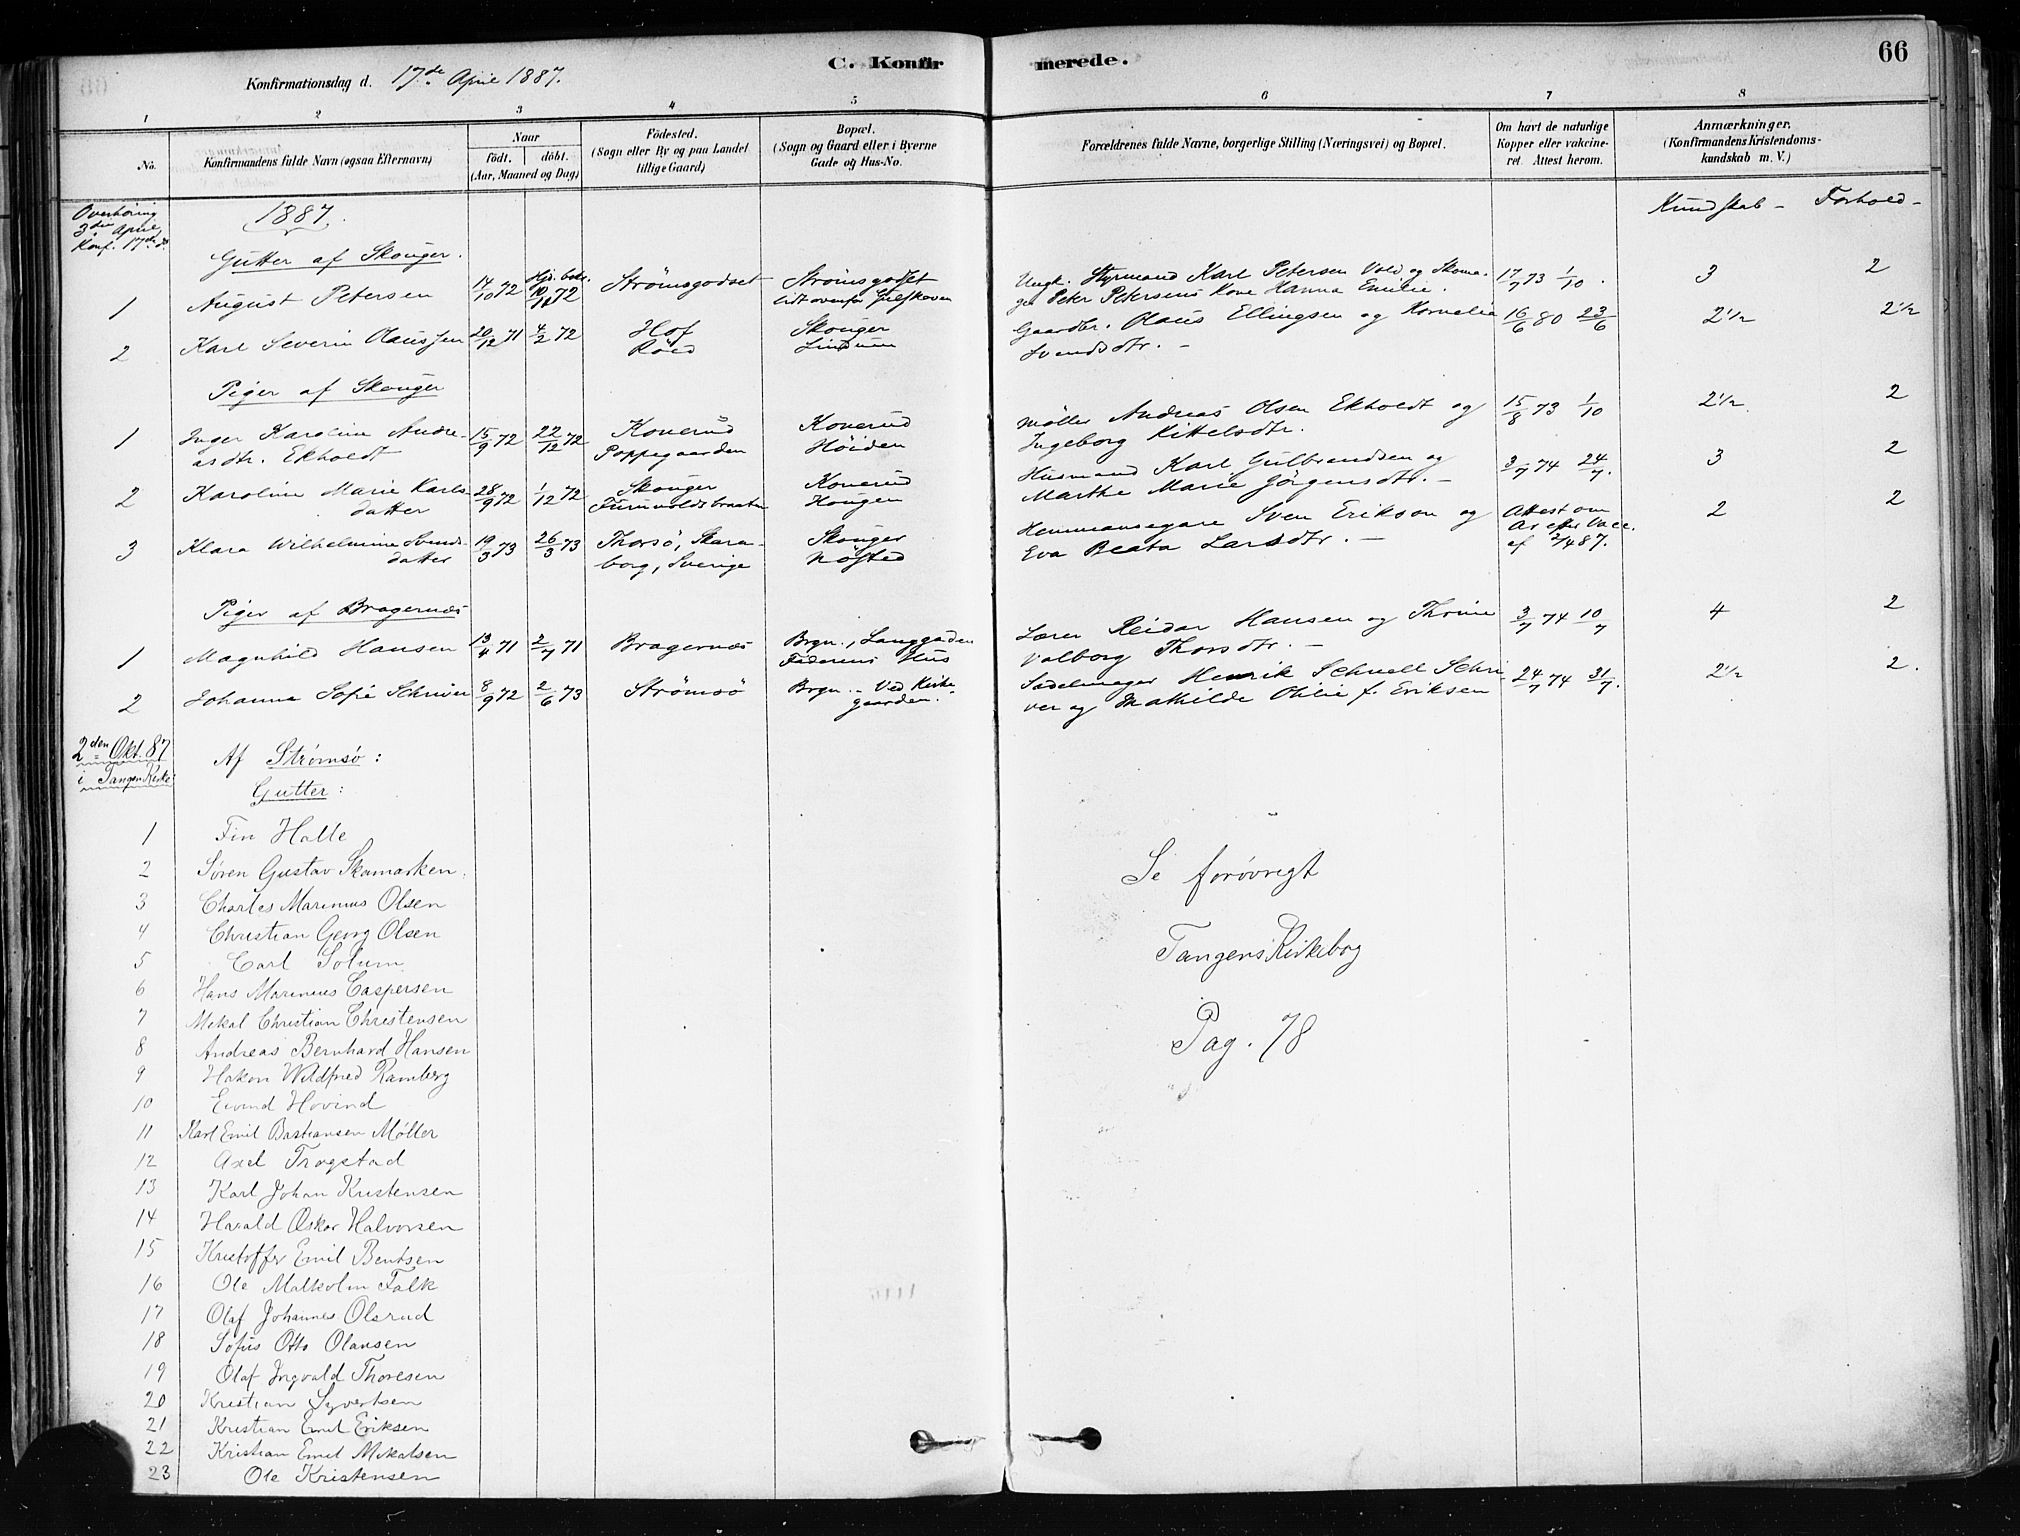 C. Konfirmerede.
66
Konfirmationsdag d. 17de April 1887.
1 2 3 4 5 6 7 8
No.
Konfirmandens fulde Navn (ogsaa Efternavn)
Naar
født. døbt.
(Aar, Maaned og Dag)
Fødested.
(Sogn eller By og paa Landet
tillige Gaard)
Bopæl.
(Sogn og Gaard eller i Byerne
Gade og Hus-No.
Forældrenes fulde Navne, borgerlige Stilling (Næringsvei) og Bopæl.
Om havt de naturlige
Kopper eller vakcine-
ret. Attest herom.
Anmærkninger.
(Konfirmandens Kristendoms-
kundskab m. V.)
Overhøring
3die April
Konf. 17de ds.
1887.
Kundskab - Forhold -
Gutter af Skouger.
1 August Petersen 14/10 72 Hjd. 10/11 72 Strömsgodset Strömsgodset
lidt ovenfor
Ungk. Styrmand Karl Petersen Vold og Skoma-
ger Peter Petersens Kone Hanna Emilie. 17/7 73 1/10. 3 2
2 Karl Severin Olaussen 20/12 71 4/2 72 Hof
Röed
Skouger
Lindum
Gaardbr. Olaus Ellingsen og Kornelia
Svendsdtr. - 16/6 80 23/6 2 1/2 2 1/2
Piger af Skouger
1 Inger Karoline Andre-
asdtr. Ekholdt 15/9 72 22/12 72 Konerud
Poppegaarden
Konerud
Höiden
Møller Andreas Olsen Ekholdt og
Ingeborg Kittelsdtr. 15/8 73 1/10 2 1/2 2
2 Karoline Marie Karls-
datter 28/9 72 1/12 72 Skouger
Furuvoldsbraaten
Konerud
Hougen
Husmand Karl Gulbrandsen og
Marthe Marie Jörgensdtr. - 3/7 74 24/7. 3 2
3 Klara Wilhelmine Svends-
datter 19/3 73 26/3 73 Thorsö, Skara-
borg, Sverige
Skouger
Nøsted
Hemmansegare Sven Erikson og
Eva Beata Larsdtr. - Attest om
Ar efter Vacc.
af 2/4 87. 2 2
Piger af Bragernæs
1 Magnhild Hansen 13/4 71 2/7 71 Bragernæs Brgn., Langgaden
Faderens Hus
Lærer Reidar Hansen og Thrine
Valborg Thorsdtr. - 3/7 74 10/7 4 2
2 Johanna Sofie Schriver 8/9 72 2/6 73 Strømsö Brgn. - Ved Kirke-
gaarden.
Sadelmager Henrik Schnell Schri-
ver og Mathilde Othilie f. Eriksen 24/7 74 31/7. 2 1/2 2.
2den Okt. 87
i Tangen Kirke
Af Strømsø:
Gutter:
1 Fin Halle
2 Søren Gustav Skamarken.
3 Charles Marinius Olsen
4 Christian Georg Olsen
5 Carl Solum
6 Hans Marinius Caspersen
7 Mikal Christian Christensen
8 Andreas Bernhard Hansen
9 Hakon Wildfred Ramberg
10 Eivind Hovind
11 Karl Emil Bastiansen Møller
12 Axel Trøgstad
13 Karl Johan Kristensen
14 Harald Oskar Halvorsen
15 Kristoffer Emil Bentsen
16 Ole Malkolm Falk
17 Olaf Johannes Olsrud
18 Sofus Otto Olausen
19 Olaf Ingvald Thoresen
20 Kristian Syvertsen
21 Kristian Emil Eriksen
22 Kristian Emil Mikalsen
23 Ole Kristensen
Se forøvrigt
Tangens Kirkebog
Pag. 78